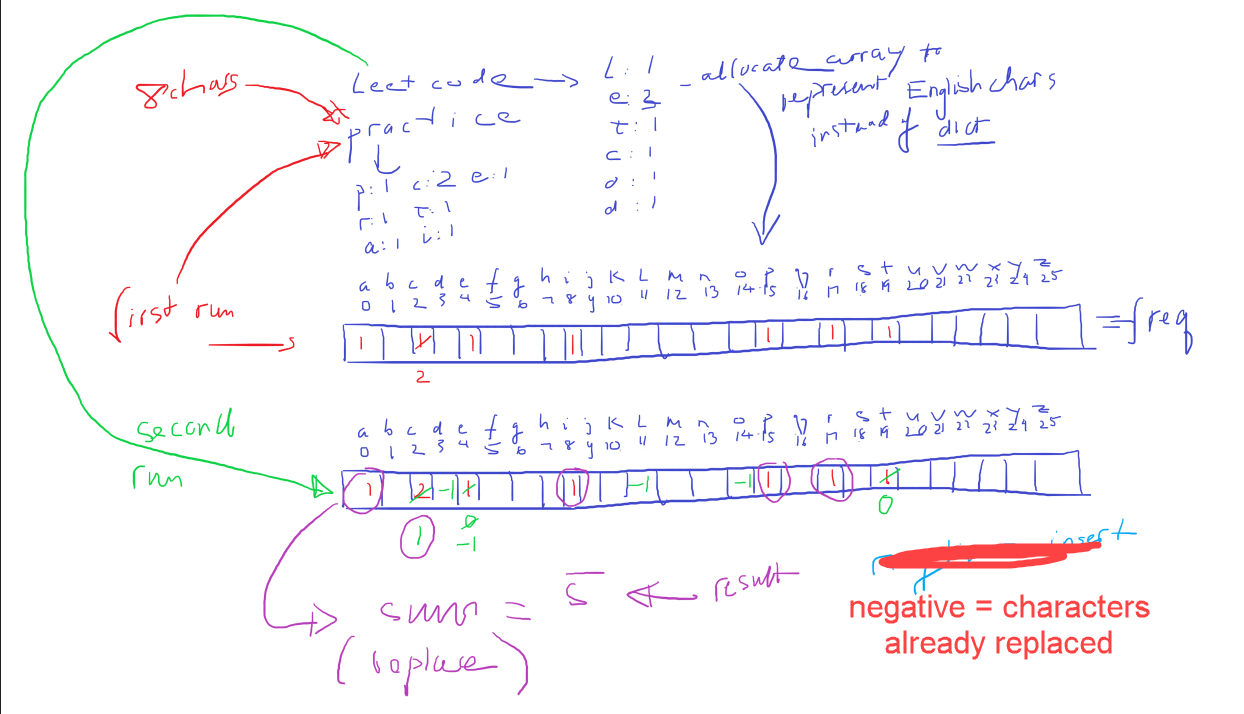 8 chars
Leetcode
practice
p:1 c:2 e:1
r:1 t:1
a:1 i:1
L: 1
e: 3
t: 1
c: 1
o: 1
d: 1
allocate array to
represent English chars
instead of dict
first run
a b c d e f g h i j K L M n o p q r s t u v w x y z
0 1 2 3 4 5 6 7 8 9 10 11 12 13 14 15 16 17 18 19 20 21 22 23 24 25
1 1 1 1 1 1 1
2
= freq
second
run
a b c d e f g h i j K L M n o p q r s t u v w x y z
0 1 2 3 4 5 6 7 8 9 10 11 12 13 14 15 16 17 18 19 20 21 22 23 24 25
1 2 -1 1 1 -1 -1 1 1 1
1 0 0
-1
sum = 5 ← result
(replace)
insert
negative = characters
already replaced